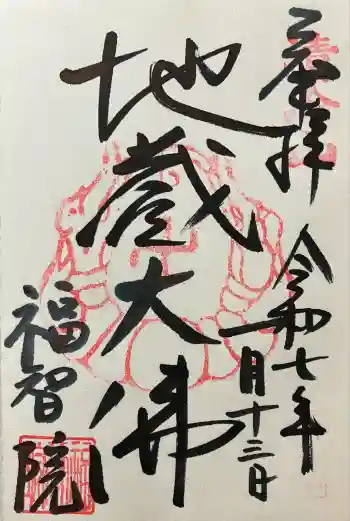 奉拝
令和七年
一月十三日
地蔵大佛
福智院